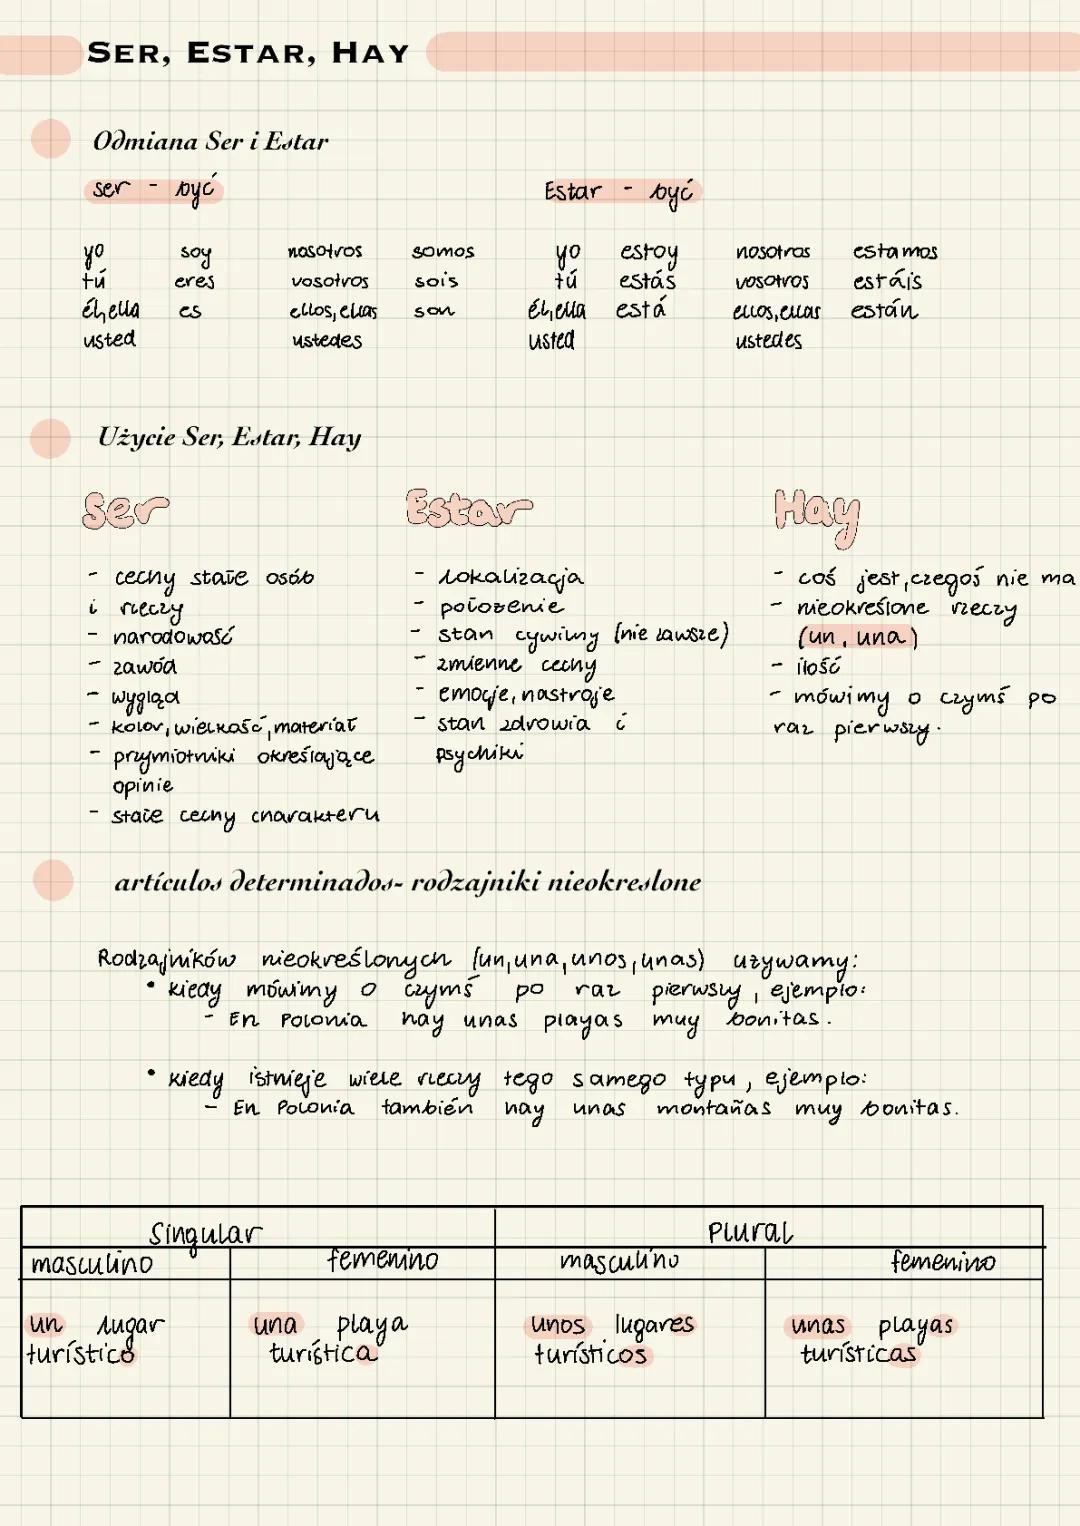 SER, ESTAR, HAY
Odmiana Ser i Estar
ser - być
Estar - być
yo soy nosotros somos yo estoy nosotros estamos
tú eres vosotros sois tú estás vosotros estáis
él, ella es ellos, ellas son él, ella está ellos, ellas están
usted ustedes usted ustedes
Użycie Ser, Estar, Hay
Ser
- cechy stałe osób
i rzeczy
- narodowość
- zawód
- wygląd
- kolor, wielkość, materiał
- przymiotniki określające
opinie
- stałe cechy charakteru
Estar
- lokalizacja
- położenie
- stan cywilny (nie zawsze)
- zmienne cechy
- emocje, nastroje
- stan zdrowia i
psychiki
Hay
- coś jest, czegoś nie ma
- nieokreślone rzeczy
(un, una)
- ilość
- mówimy o czymś po
raz pierwszy.
artículos determinados- rodzajniki nieokreslone
Rodzajników nieokreślonych (un, una, unos, unas) używamy:
• kiedy mówimy o czymś po raz pierwszy, ejemplo:
- En Polonia hay unas playas muy bonitas.
• kiedy istnieje wiele rzeczy tego samego typu, ejemplo:
- En Polonia también hay unas montañas muy bonitas.
Singular Plural
masculino femenino masculino femenino
un lugar una playa unos lugares unas playas
turístico turística turísticos turísticas